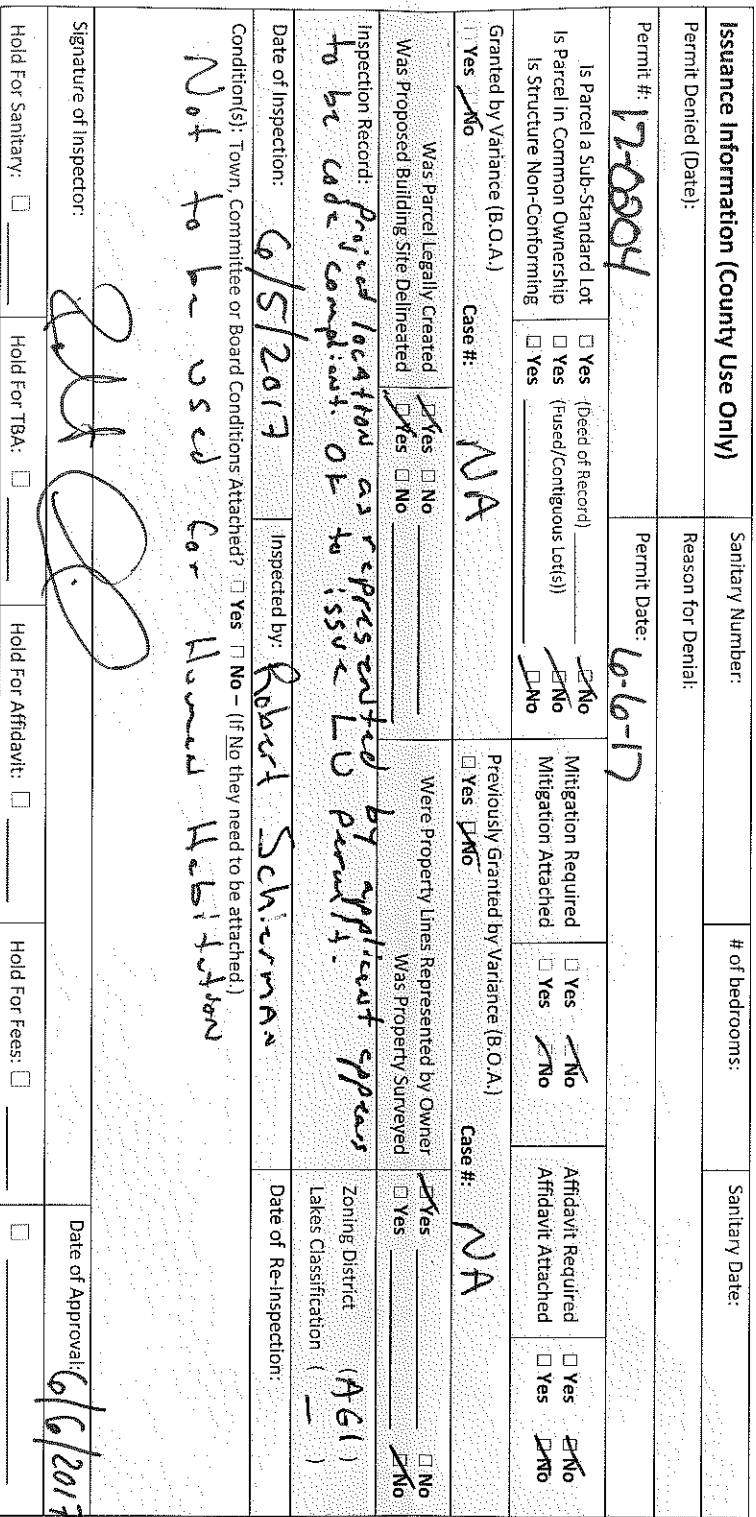 Issuance Information (County Use Only)
Sanitary Number:
# of bedrooms:
Sanitary Date:
Permit Denied (Date):
Reason for Denial:
Permit #: 17-0204
Permit Date: 6-6-17
Is Parcel a Sub-Standard Lot ☐ Yes (Deed of Record) ☐ No
Is Parcel in Common Ownership ☐ Yes (Fused/Contiguous Lot(s)) ☐ No
Is Structure Non-Conforming ☐ Yes ☐ No
Mitigation Required ☐ Yes ☐ No
Mitigation Attached ☐ Yes ☐ No
Affidavit Required ☐ Yes ☐ No
Affidavit Attached ☐ Yes ☐ No
Granted by Variance (B.O.A.)
☐ Yes ☐ No Case #: NA
Previously Granted by Variance (B.O.A.)
☐ Yes ☐ No Case #: NA
Was Parcel Legally Created ☐ Yes ☐ No
Was Proposed Building Site Delineated ☐ Yes ☐ No
Were Property Lines Represented by Owner ☐ Yes ☐ No
Was Property Surveyed ☐ Yes ☐ No
Inspection Record: Project location as represented by applicant appears
to be code compliant. OK to issue LU permit.
Zoning District (AG1)
Lakes Classification ( — )
Date of Inspection: 6/5/2017
Inspected by: Robert Schierman
Date of Re-Inspection:
Condition(s): Town, Committee or Board Conditions Attached? ☐ Yes ☐ No – (If No they need to be attached.)
Not to be used for Human Habitation
Signature of Inspector:
Date of Approval: 6/6/2017
Hold For Sanitary: ☐
Hold For TBA: ☐
Hold For Affidavit: ☐
Hold For Fees: ☐
☐